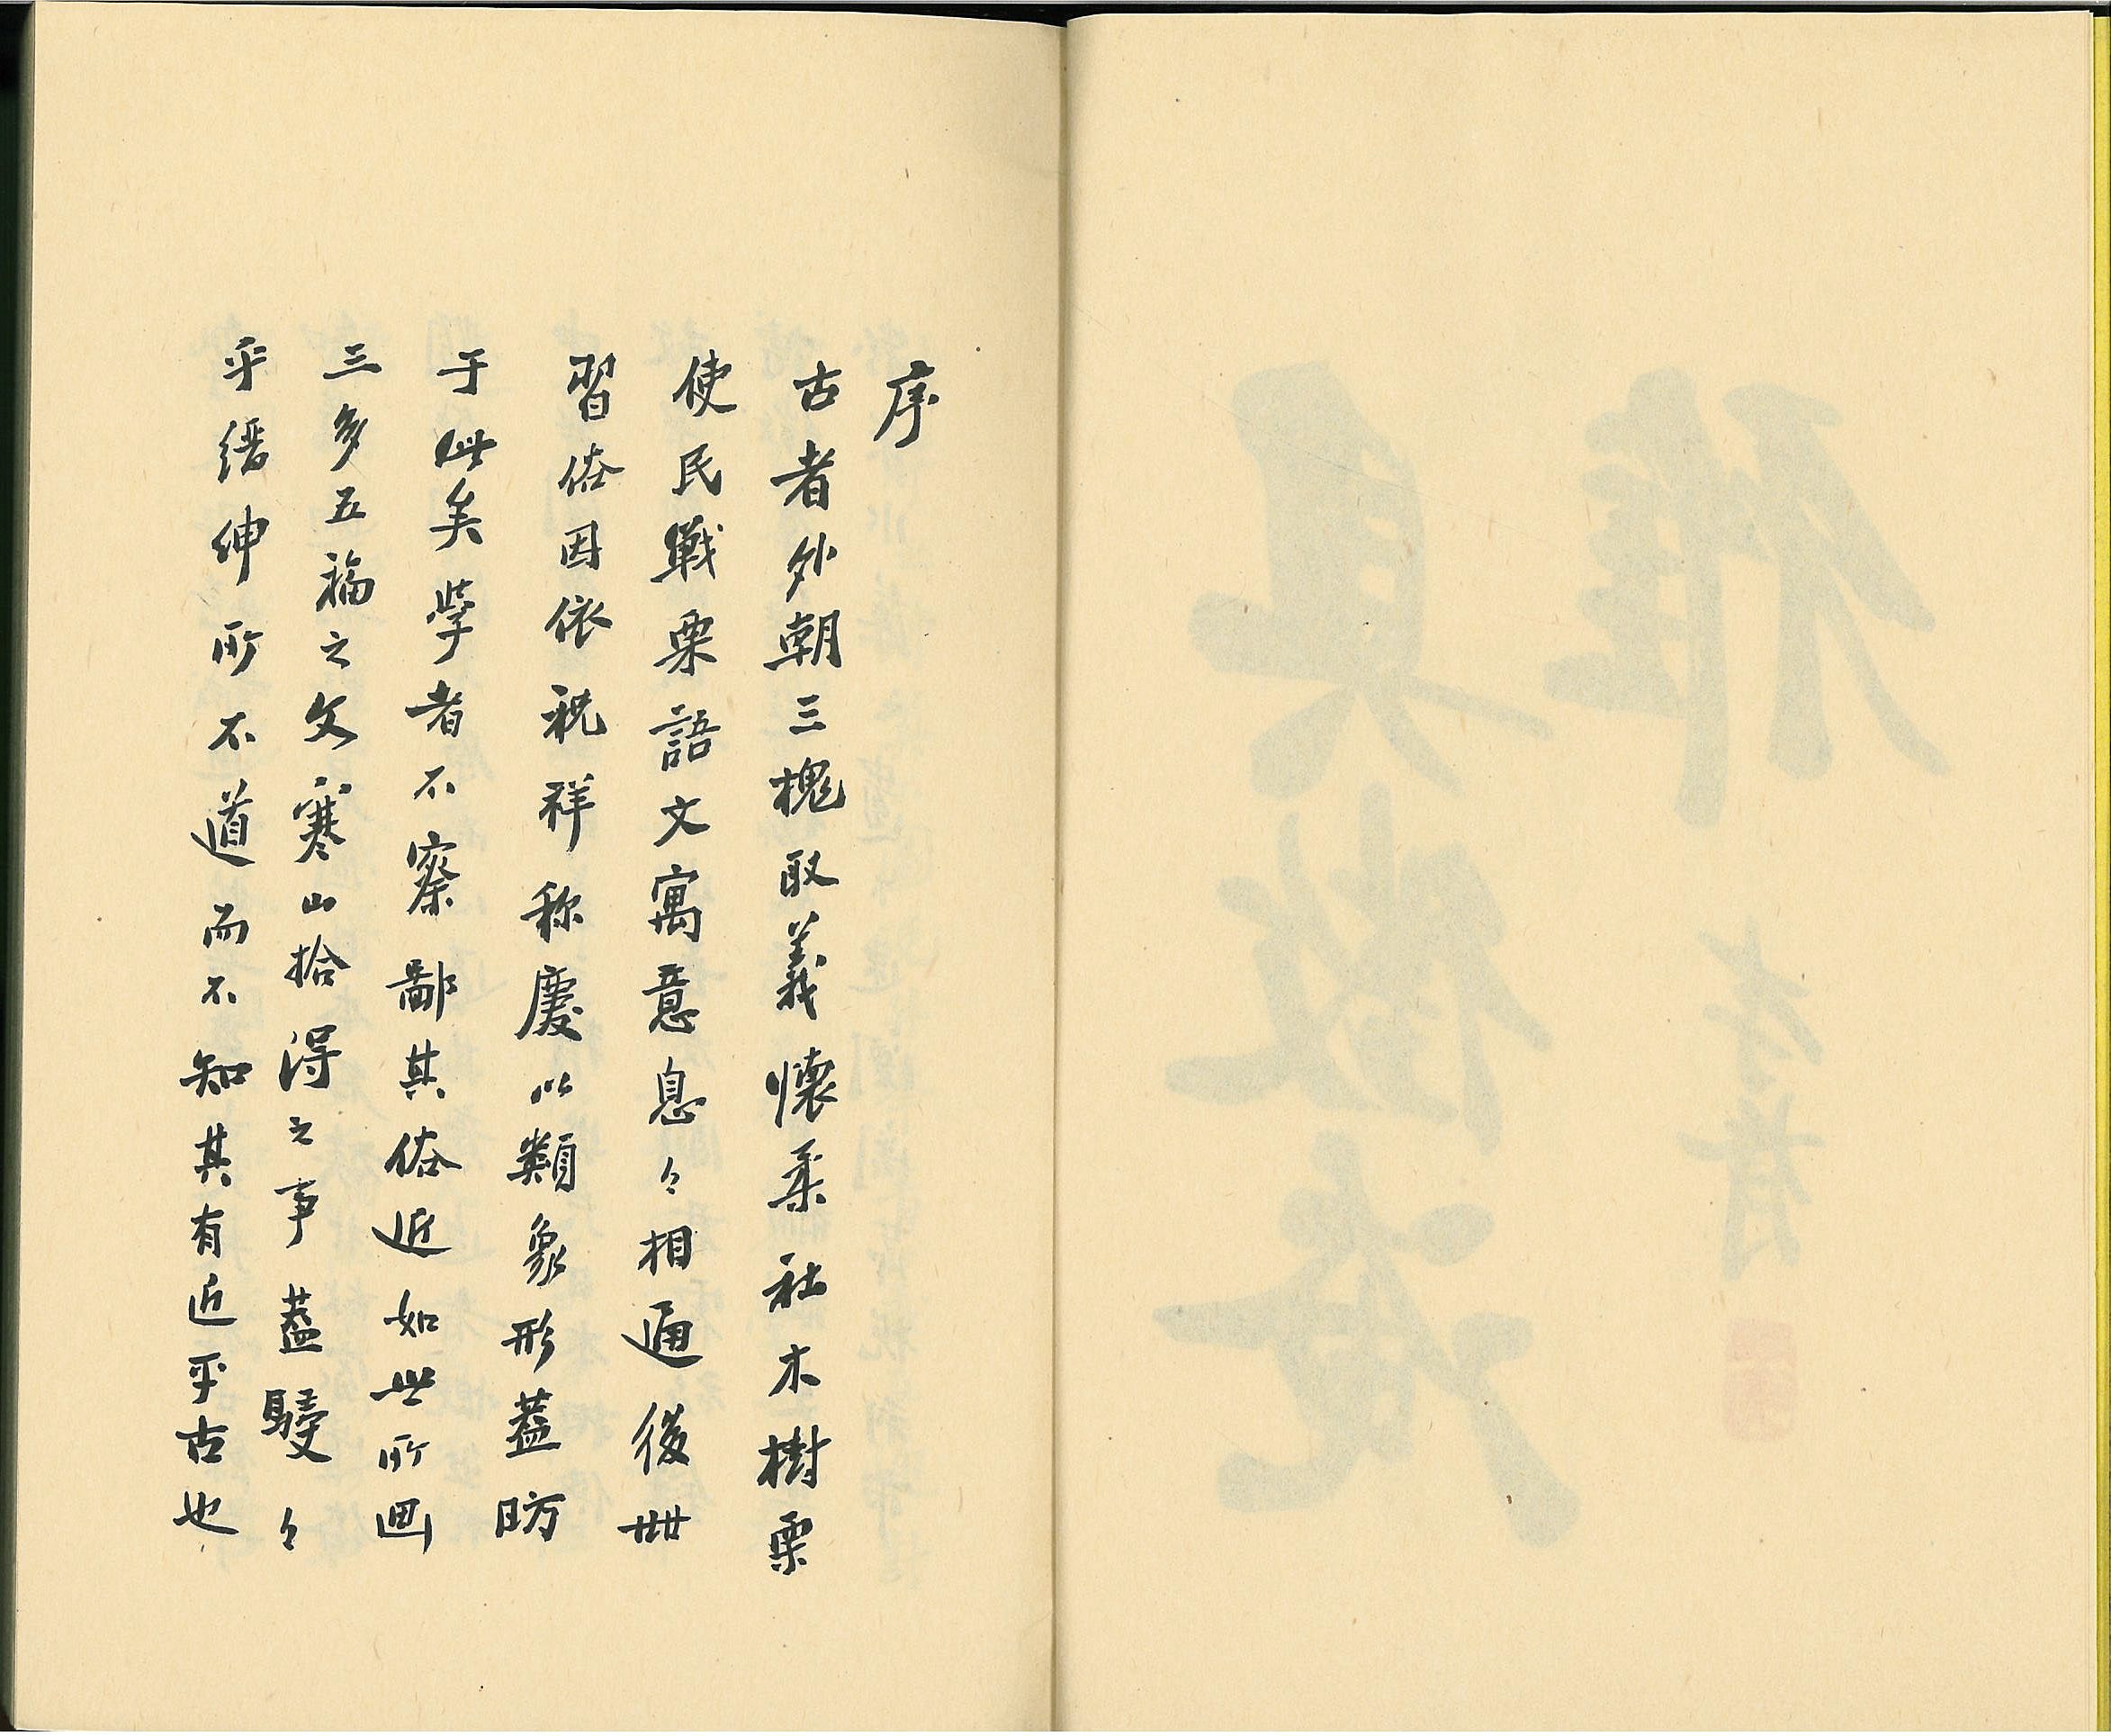 序
古者外朝三槐取義懷柔社木樹栗
使民戰栗語文寓意息々相通後世
習俗因依祝祥称慶以類象形蓋昉
于此矣學者不察鄙其俗近如此所画
三多五福之文寒山拾得之事蓋駸々
乎縉紳所不道而不知其有近乎古也